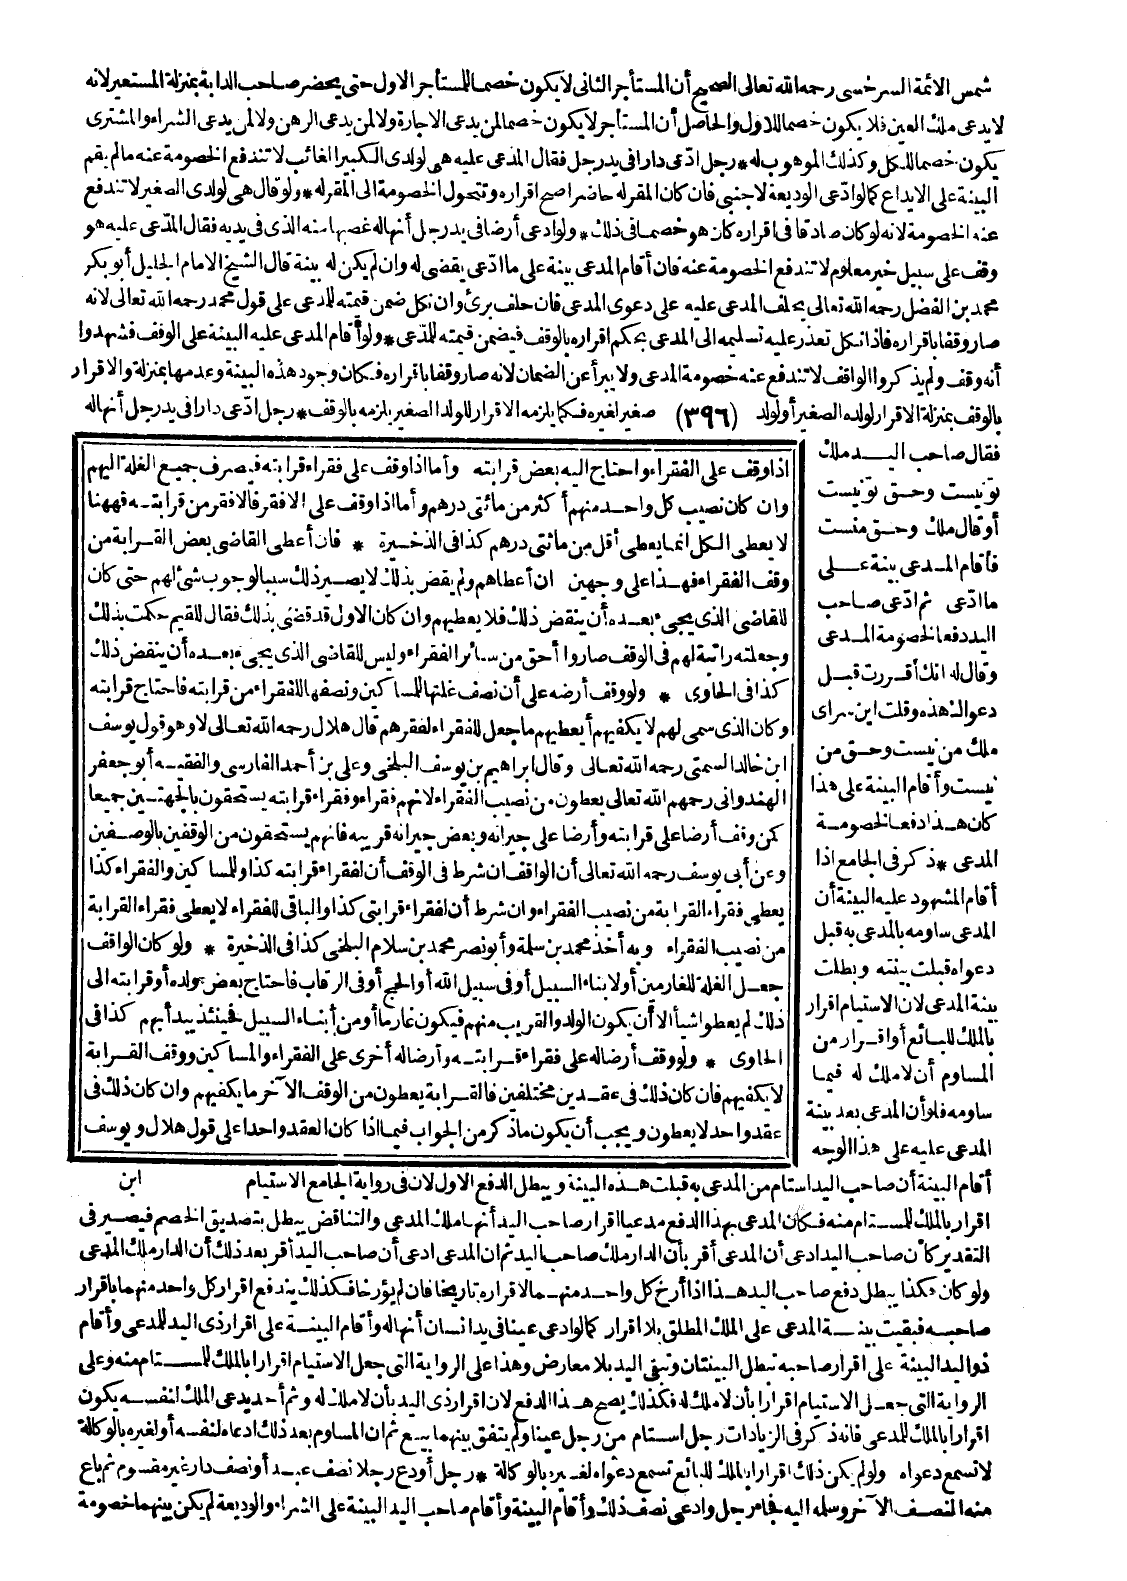 شمس الائمة السرخسى رحمه الله تعالى الصحيح أن المستأجر الثانى لا يكون خصما للمستأجر الاول حتى يحضر صاحب الدابة بمنزلة المستعير لانه
لا يدعى ملك العين فلا يكون خصما للاول والحاصل أن المستأجر لا يكون خصما لمن يدعى الاجارة ولا لمن يدعى الرهن ولا لمن يدعى الشراء والمشترى
يكون خصما للكل وكذلك الموهوب له * رجل ادّعى دارا فى يد رجل فقال المدعى عليه هى لولدى الكبير الغائب لا تندفع الخصومة عنه ما لم يقم
البينة على الايداع كما لو ادّعى الوديعة لاجنبى فان كان المقر له حاضرا صح اقراره وتتحول الخصومة الى المقر له * ولو قال هى لولدى الصغير لا تندفع
عنه الخصومة لانه لو كان صادقا فى اقراره كان هو خصما فى ذلك * ولو ادعى أرضا فى يد رجل أنها له غصبها منه الذى فى يديه فقال المدّعى عليه هو
وقف على سبيل خير معلوم لا تندفع الخصومة عنه فان أقام المدعى بينة على ما ادّعى يقضى له وان لم يكن له بينة قال الشيخ الامام الجليل أبو بكر
محمد بن الفضل رحمه الله تعالى يحلف المدعى عليه على دعوى المدعى فان حلف برئ وان نكل ضمن قيمته للمدعى على قول محمد رحمه الله تعالى لانه
صار وقفا باقراره فاذا نكل تعذر عليه تسليمه الى المدعى بحكم اقراره بالوقف فيضمن قيمته للمدّعى * ولو أقام المدعى عليه البينة على الوقف فشهدوا
أنه وقف ولم يذكروا الواقف لا تندفع عنه خصومة المدعى ولا يبرأ عن الضمان لانه صار وقفا باقراره فكان وجود هذه البينة وعدمها بمنزلة والاقرار
بالوقف بمنزلة الاقرار لولده الصغير أو لولد (٣٩٦) صغير لغيره فكما يلزمه الاقرار للولد الصغير يلزمه بالوقف * رجل ادّعى دارا فى يد رجل أنها له
فقال صاحب اليد ملك
تونيست وحق تونيست
أو قال ملك وحق منست
فأقام المدعى بينة على
ما ادّعى ثم ادّعى صاحب
اليد دفعا لخصومة المدعى
وقال له انك أقررت قبل
دعواك هذه وقلت اين سراى
ملك من نيست وحق من
نيست وأقام البينة على هذا
كان هذا دفعا لخصومة
المدعى * ذكر فى الجامع اذا
أقام المشهود عليه البينة أن
المدعى ساومه بالمدعى به قبل
دعواه قبلت بينته وبطلت
بينة المدعى لان الاستيام اقرار
بالملك للبائع أو اقرار من
المساوم أن لا ملك له فيما
ساومه فلو أن المدعى بعد بينة
المدعى عليه على هذا الوجه
اذا وقف على الفقراء واحتاج اليه بعض قرابته وأما اذا وقف على فقراء قرابته فيصرف جميع الغلة اليهم
وان كان نصيب كل واحد منهم أكثر من مائتى درهم وأما اذا وقف على الافقر فالافقر من قرابته فههنا
لا يعطى الكل انما يعطى أقل من مائتى درهم كذا فى الذخيرة * فان أعطى القاضى بعض القرابة من
وقف الفقراء فهذا على وجهين ان أعطاهم ولم يقض بذلك لا يصير ذلك سببا لوجوب شئ لهم حتى كان
للقاضى الذى يجىء بعده أن ينقض ذلك فلا يعطيهم وان كان الاول قد قضى بذلك فقال للقيم حكمت بذلك
وجعلته راتبة لهم فى الوقف صاروا أحق من سائر الفقراء وليس للقاضى الذى يجىء بعده أن ينقض ذلك
كذا فى الحاوى * ولو وقف أرضه على أن نصف غلتها للمساكين ونصفها للفقراء من قرابته فاحتاج قرابته
وكان الذى سمى لهم لا يكفيهم أيعطيهم ما جعل للفقراء لفقرهم قال هلال رحمه الله تعالى لا وهو قول يوسف
ابن خالد السمتى رحمه الله تعالى وقال ابراهيم بن يوسف البلخى وعلى بن أحمد الفارسى والفقيه أبو جعفر
الهندوانى رحمهم الله تعالى يعطون من نصيب الفقراء لانهم فقراء وفقراء قرابته يستحقون بالجهتين جميعا
كمن وقف أرضا على قرابته وأرضا على جيرانه وبعض جيرانه قريبه فانهم يستحقون من الوقفين بالوصفين
وعن أبى يوسف رحمه الله تعالى أن الواقف ان شرط فى الوقف أن لفقراء قرابته كذا وللمساكين والفقراء كذا
يعطى فقراء القرابة من نصيب الفقراء وان شرط أن لفقراء قرابتى كذا والباقى للفقراء لا يعطى فقراء القرابة
من نصيب الفقراء وبه أخذ محمد بن سلمة وأبو نصر محمد بن سلام البلخى كذا فى الذخيرة * ولو كان الواقف
جعل الغلة للغارمين أو لابناء السبيل أو فى سبيل الله أو الحج أو فى الرقاب فاحتاج بعض ولده أو قرابته الى
ذلك لم يعطوا شيأ الا أن يكون الولد والقريب منهم فيكون غارما أو من أبناء السبيل فحينئذ يبدأ بهم كذا فى
الحاوى * ولو وقف أرضا له على فقراء قرابته وأرضا له أخرى على الفقراء والمساكين ووقف القرابة
لا يكفيهم فان كان ذلك فى عقدين مختلفين فالقرابة يعطون من الوقف الآخر ما يكفيهم وان كان ذلك فى
عقد واحد لا يعطون ويجب أن يكون ما ذكر من الجواب فيما اذا كان العقد واحدا على قول هلال ويوسف
ابن
أقام البينة أن صاحب اليد استام من المدعى به قبلت هذه البينة ويبطل الدفع الاول لان فى رواية الجامع الاستيام
اقرار بالملك للمستام منه فكان المدعى بهذا الدفع مدعيا اقرار صاحب اليد أنها ملك المدعى والتناقض يبطل بتصديق الخصم فيصير فى
التقدير كأن صاحب اليد ادعى أن المدعى أقر بأن الدار ملك صاحب اليد ثم ان المدعى ادعى أن صاحب اليد أقر بعد ذلك أن الدار ملك المدعى
ولو كان هكذا يبطل دفع صاحب اليد هذا اذا أرخ كل واحد منهما لاقراره تاريخا فان لم يؤرخا فكذلك يندفع اقرار كل واحد منهما باقرار
صاحبه فبقيت بينة المدعى على الملك المطلق بلا اقرار كما لو ادعى عينا فى يد انسان أنها له وأقام البينة على اقرار ذى اليد للمدعى وأقام
ذو اليد البينة على اقرار صاحبه تبطل البينتان وتبقى اليد بلا معارض وهذا على الرواية التى جعل الاستيام اقرارا بالملك للمستام منه وعلى
الرواية التى جعل الاستيام اقرارا بأن لا ملك له فكذلك يصح هذا الدفع لان اقرار ذى اليد بأن لا ملك له وثم أحد يدعى الملك لنفسه يكون
اقرارا بالملك للمدعى فانه ذكر فى الزيادات رجل استام من رجل عينا ولم يتفق بينهما بيع ثم ان المساوم بعد ذلك ادعاه لنفسه أو لغيره بالوكالة
لا تسمع دعواه ولو لم يكن ذلك اقرارا بالملك للبائع تسمع دعواه لغيره بالوكالة * رجل أودع رجلا نصف عبد أو نصف دار غير مقسوم ثم باع
منه النصف الآخر وسلمه اليه فجاء رجل وادعى نصف ذلك وأقام البينة وأقام صاحب اليد البينة على الشراء والوديعة لم يكن بينهما خصومة